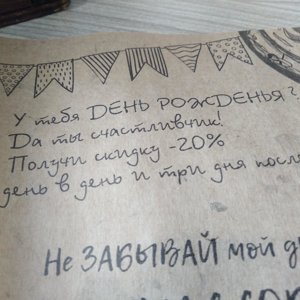 У тебя ДЕНЬ РОЖДЕНЬЯ?
Да ты счастливчик!
Получи скидку -20%
день в день и три дня после
Не ЗАБЫВАЙ мой